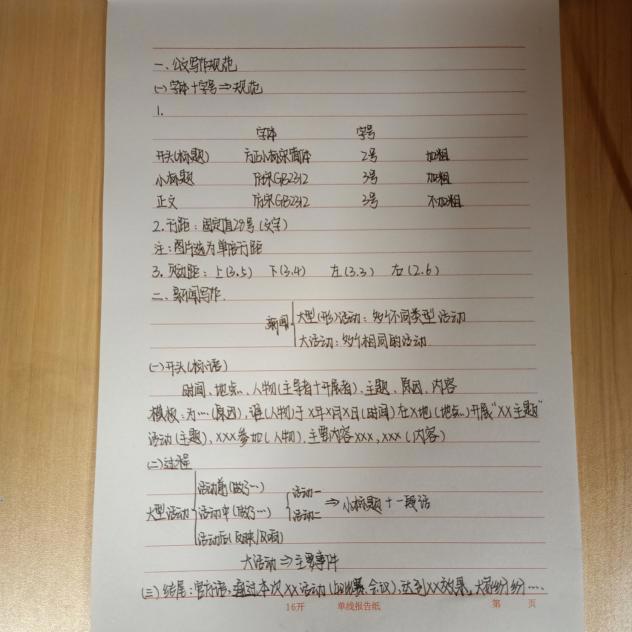 一、公文写作规范
(一)字体+字号⇒规范
1.
字体 字号
开头(标题) 方正小标宋简体 2号 加粗
小标题 仿宋GB2312 3号 加粗
正文 仿宋GB2312 3号 不加粗
2.行距：固定值28号(文字)
注：图片选为单倍行距
3.页边距：上(3.5) 下(3.4) 左(3.3) 右(2.6)
二、新闻写作.
新闻 大型(形)活动：多个不同类型活动
大活动：多个相同的活动
(一)开头(标语)
时间、地点、人物(主导者+开展者)、主题、原因、内容
模板：为…(原因)，谁(人物)于X年X月X日(时间)在X地(地点)开展"XX主题"
活动(主题)，XXX参加(人物)，主要内容XXX，XXX(内容)
(二)过程
大型活动 活动前(做了…)
活动中(做了…) 活动一 活动二 ⇒小标题+一段话
活动后(反映/反响)
大活动⇒主要事件
(三)结尾：官方语，通过本次XX活动(如比赛,会议)，达到XX效果，大家纷纷….
16开 单线报告纸 第 页